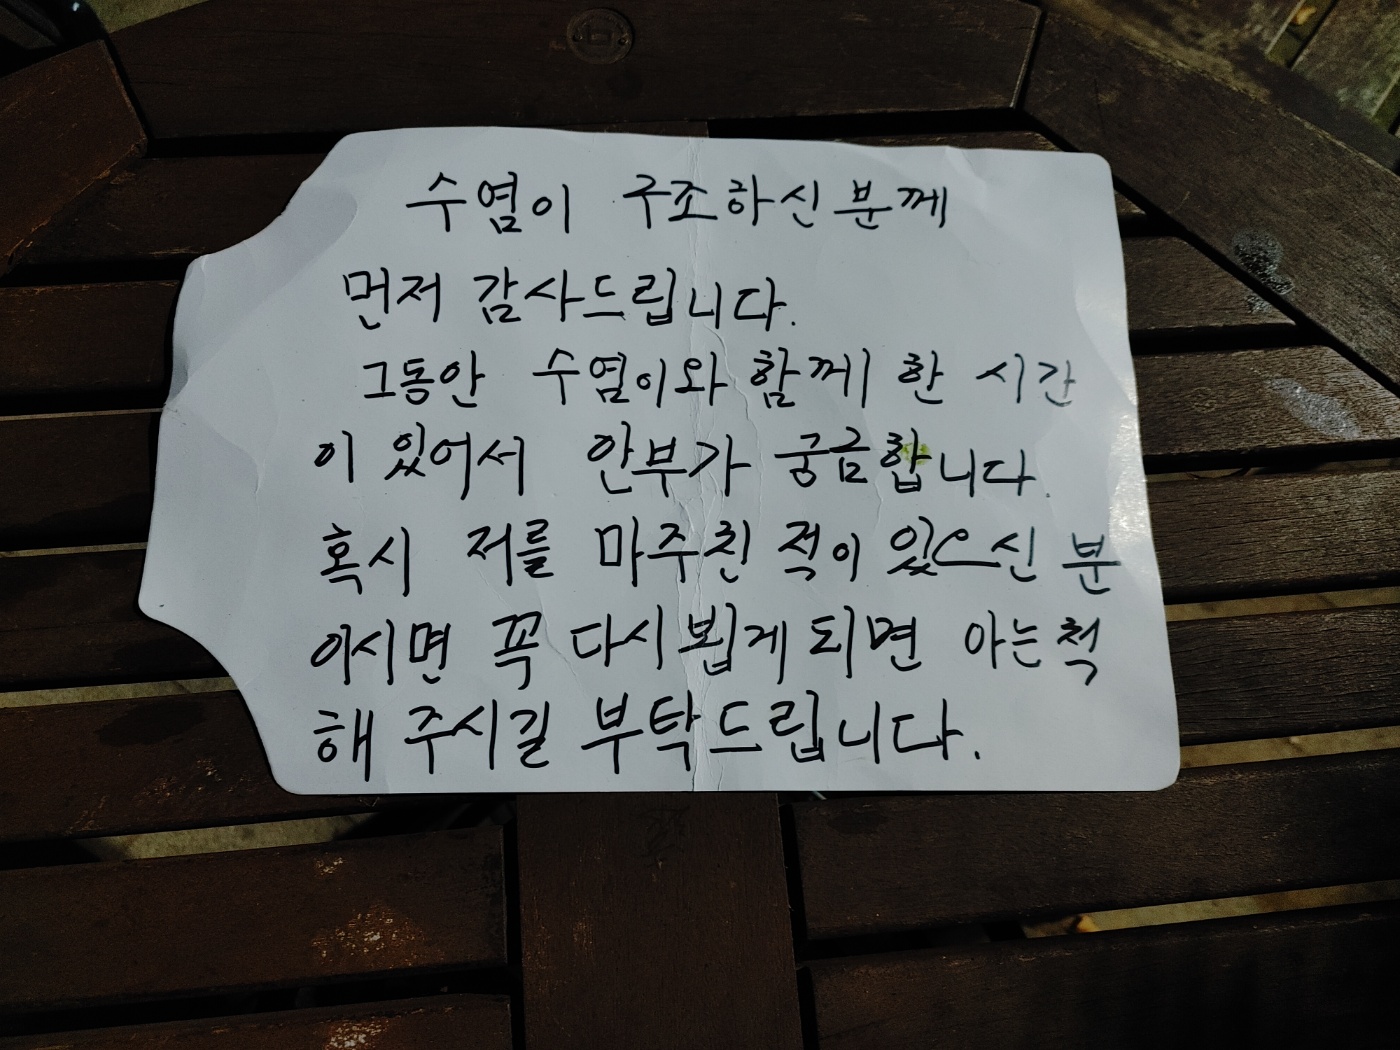 수염이 구조하신분께
먼저 감사드립니다.
그동안 수염이와 함께 한 시간
이 있어서 안부가 궁금합니다.
혹시 저를 마주친 적이 있으신 분
이시면 꼭 다시 뵙게 되면 아는척
해 주시길 부탁드립니다.